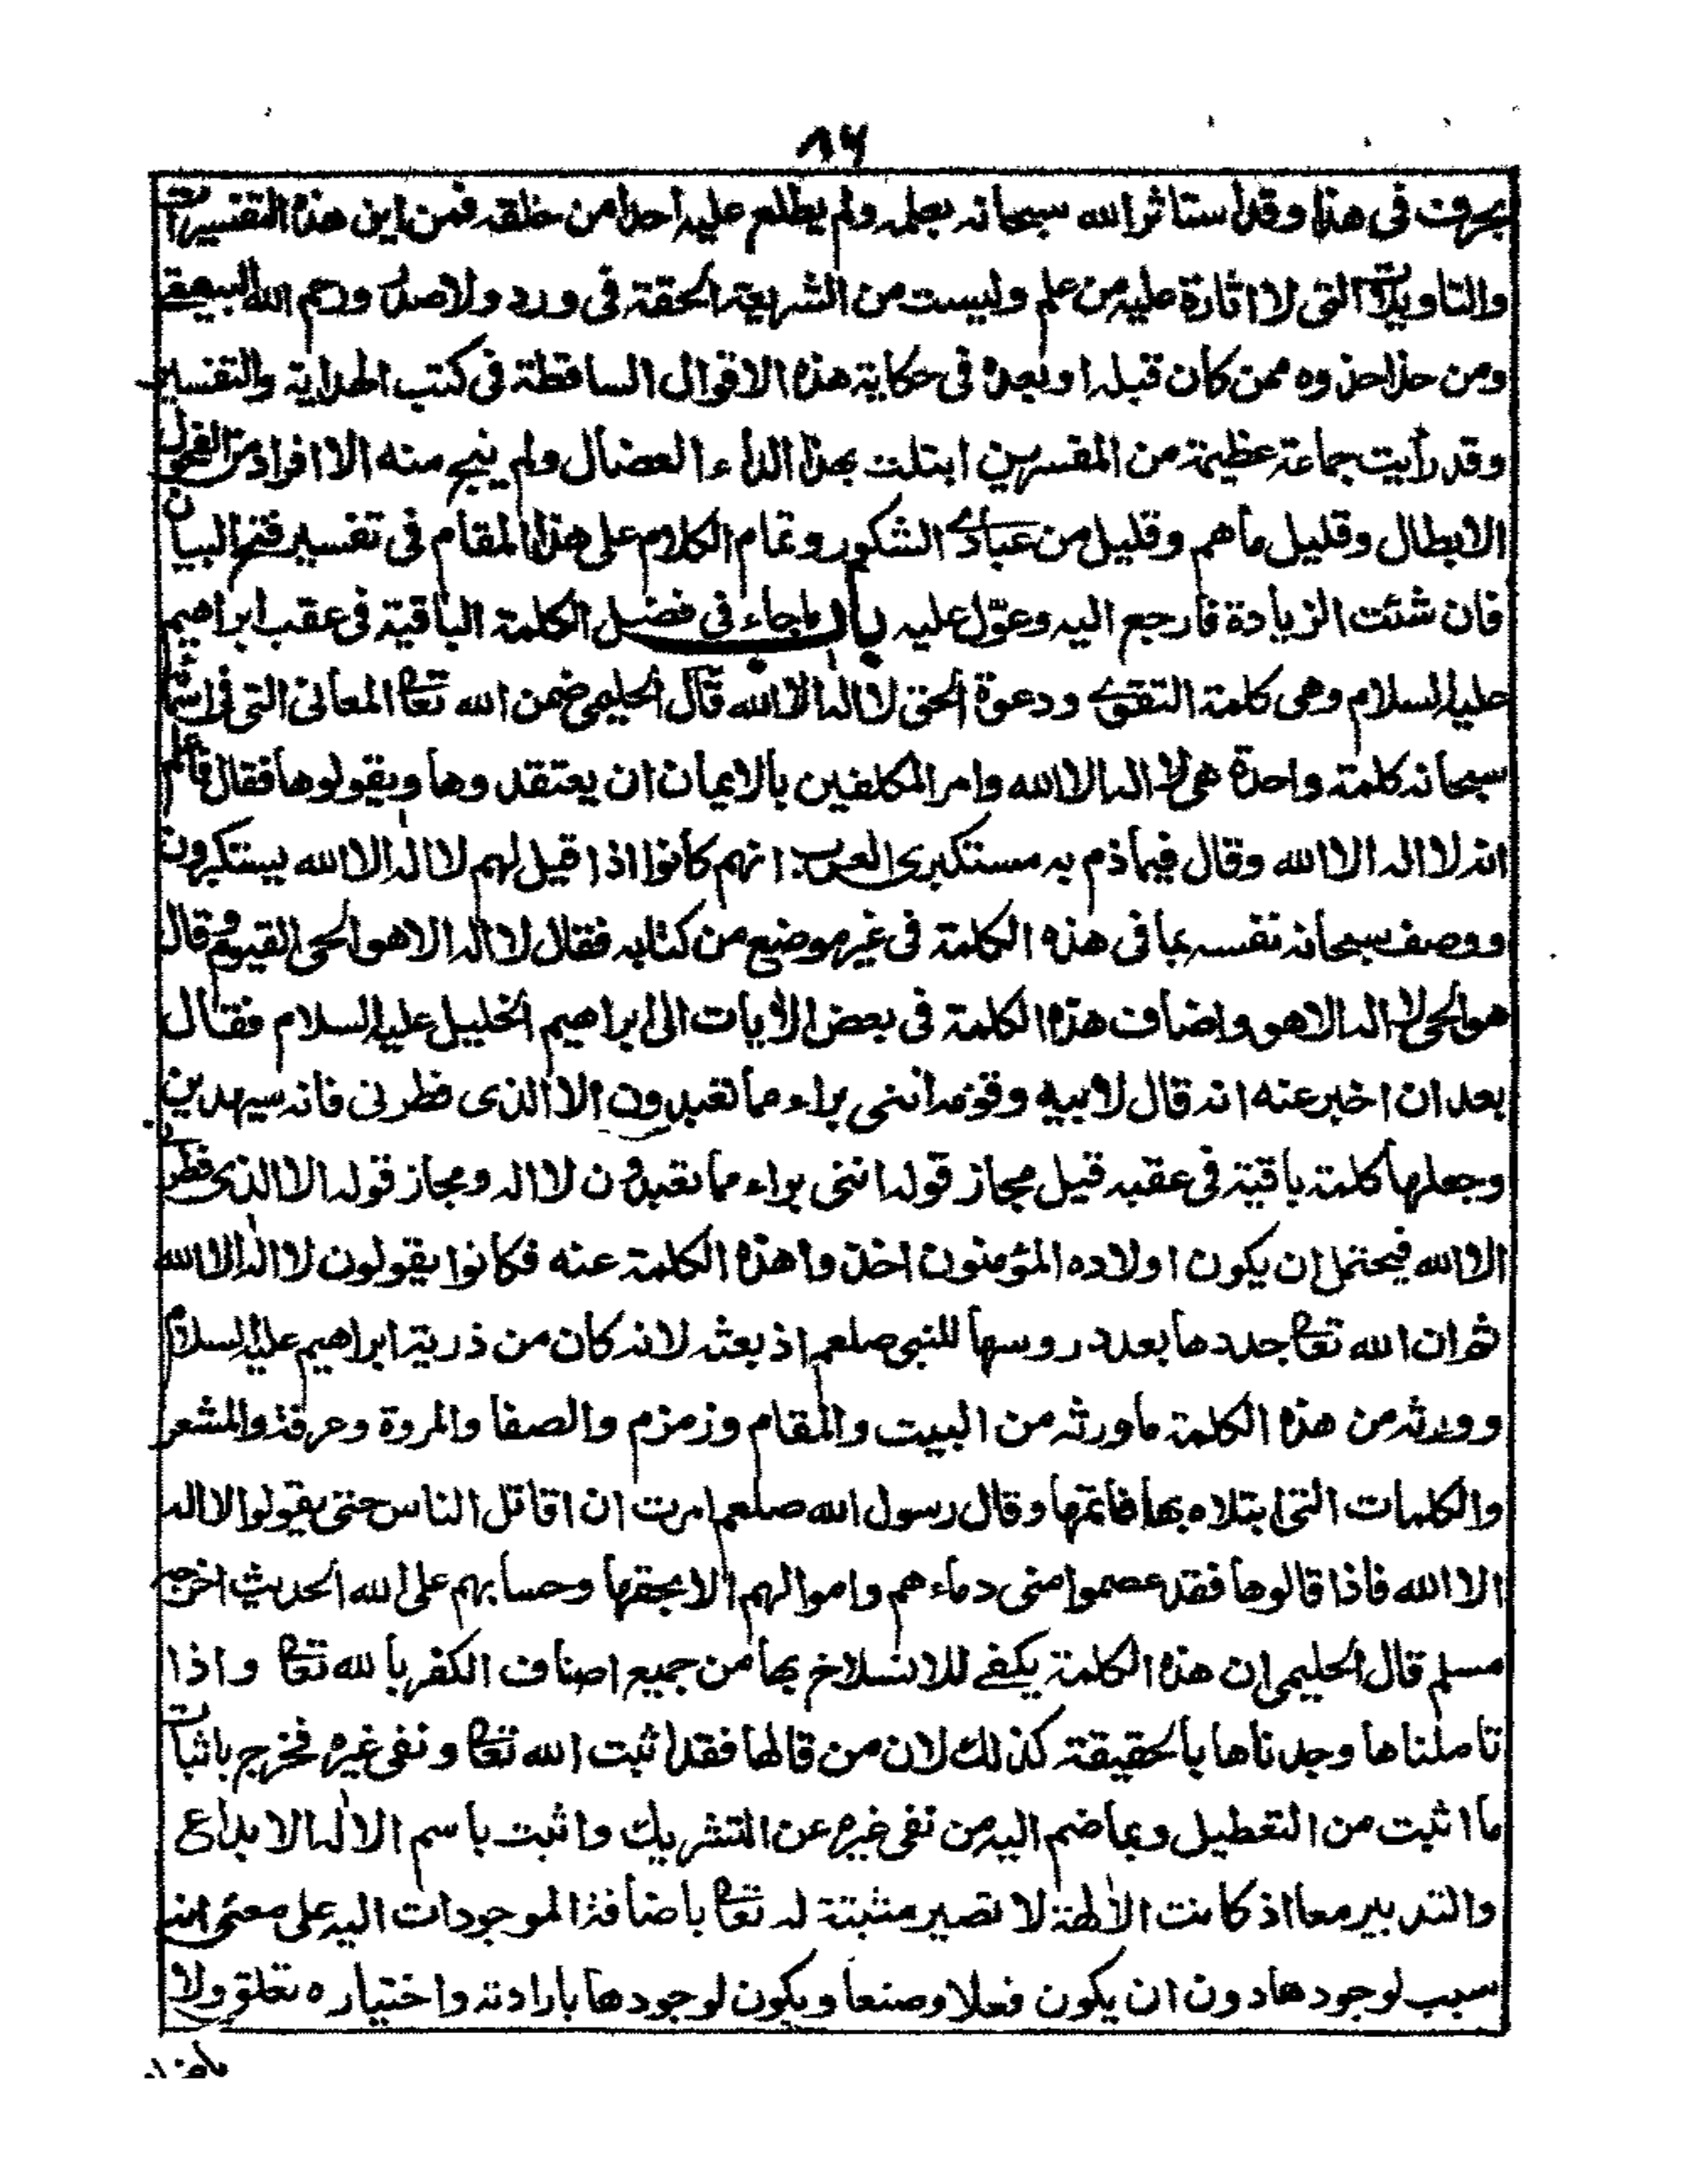 ١٧
بحرف في هذا وقد استاثر الله سبحانه بعلمه ولم يطلع عليه احدا من خلقه فمن اين هذه التفسيرات
والتاويلات التي لا اثارة عليه من علم وليست من الشريعة الحقة في ورد ولا صدر ورحم الله البيهقي
ومن حذا حذوه ممن كان قبله او بعده في حكاية هذه الاقوال الساقطة في كتب الهداية والتفسير
وقد رأيت جماعة عظيمة من المفسرين ابتلت بهذا الداء العضال ولم ينج منه الا افراد من الفحول
الابطال وقليل ما هم وقليل من عبادي الشكور وتمام الكلام على هذا المقام في تفسير فتح البيان
فان شئت الزيادة فارجع اليه وعوّل عليه باب ما جاء في فضل الكلمة الباقية في عقب ابراهيم
عليه السلام وهي كلمة التقوى ودعوة الحق لا اله الا الله قال الحليمي ضمن الله تعالى المعاني التي في اسمائه
سبحانه كلمة واحدة هي لا اله الا الله وامر المكلفين بالايمان ان يعتقدوها ويقولوها فقال فاعلم
انه لا اله الا الله وقال فيما ذم به مستكبري العرب: انهم كانوا اذا قيل لهم لا اله الا الله يستكبرون
ووصف سبحانه نفسه بما في هذه الكلمة في غير موضع من كتابه فقال لا اله الا هو الحي القيوم وقال
هو الحي لا اله الا هو واضاف هذه الكلمة في بعض الآيات الى ابراهيم الخليل عليه السلام فقال
بعد ان اخبر عنه انه قال لابيه وقومه انني براء مما تعبدون الا الذي فطرني فانه سيهدين
وجعلها كلمة باقية في عقبه قيل مجاز قوله انني براء مما تعبدون لا اله ومجاز قوله الا الذي فطرني
الا الله فيحتمل ان يكون اولاده المؤمنون اخذوا هذه الكلمة عنه فكانوا يقولون لا اله الا الله
ثم ان الله تعالى جددها بعد دروسها للنبي صلعم اذ بعثه لانه كان من ذرية ابراهيم عليه السلام
وورثه من هذه الكلمة ما ورثه من البيت والمقام وزمزم والصفا والمروة وعرفة والمشعر
والكلمات التي ابتلاه بها فاتمها وقال رسول الله صلعم امرت ان اقاتل الناس حتى يقولوا لا اله
الا الله فاذا قالوها فقد عصموا مني دماءهم واموالهم الا بحقها وحسابهم على الله الحديث اخرجه
مسلم قال الحليمي ان هذه الكلمة يكفي للانسلاخ بها من جميع اصناف الكفر بالله تعالى واذا
تاملناها وجدناها بالحقيقة كذلك لان من قالها فقد اثبت الله تعالى ونفى غيره فخرج باثبات
ما اثبت من التعطيل وبما ضم اليه من نفي غيره عن التشريك واثبت باسم الاله الابداع
والتدبير معا اذ كانت الالهة لا تصير مثبتة له تعالى باضافة الموجودات اليه على معنى انه
سبب لوجودها دون ان يكون فعلا وصنعا ويكون لوجودها بارادته واختياره تعلق ولا